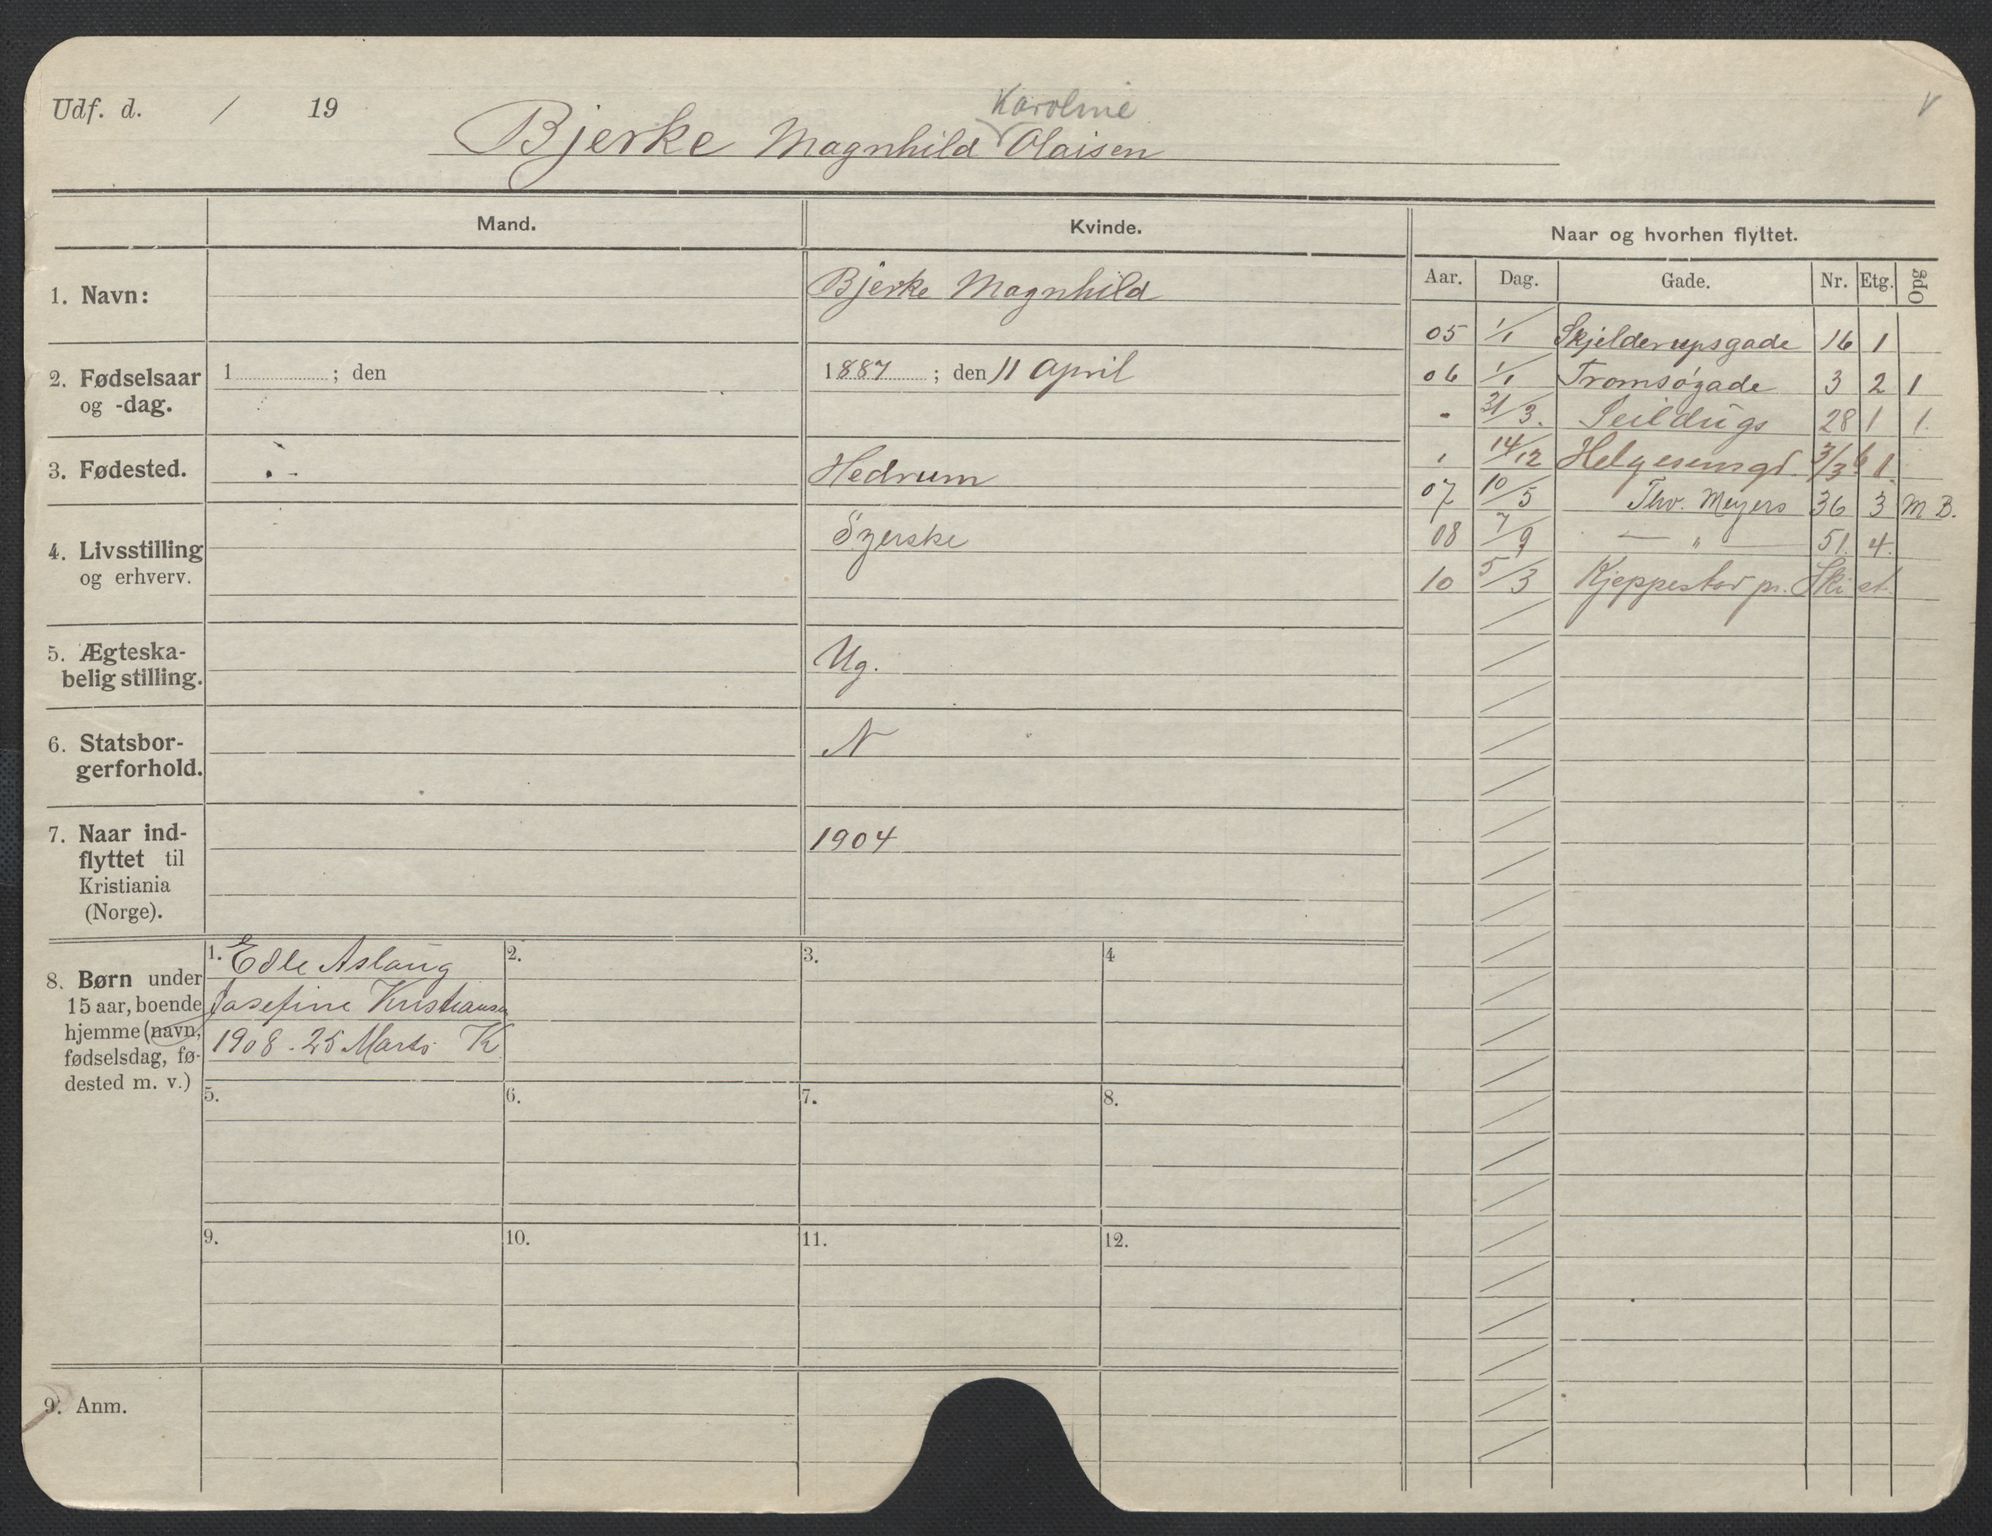 Udf. d. / 19
Karoline
Bjerke Magnhild Olaisen
Mand. Kvinde. Naar og hvorhen flyttet.
Aar. Dag. Gade. Nr. Etg. Opg
1. Navn: Bjerke Magnhild
2. Fødselsaar og -dag. 1 ; den 1887 ; den 11 April
3. Fødested. Hedrum
4. Livsstilling og erhverv. Syerske
5. Ægteska-
belig stilling. Ug.
6. Statsbor-
gerforhold. N
7. Naar ind-
flyttet til
Kristiania
(Norge). 1904
05 1/1 Skjelderupsgade 16 1
06 1/1 Tromsøgade 3 2 1
" 31/3. Seildugs 28 1 1.
" 14/12 Helgesensgd. 1.
07 10/5 Thv. Meyers 36 3 M B.
08 7/9 — " — 51. 4.
10 5/3 Kjeppestad pr. Ski st.
8. Børn under
15 aar, boende
hjemme (navn,
fødselsdag, fø-
dested m. v.)
1. Edle Aslaug
Josefine Kristiansen
1908 - 25 Marts K
2.
3.
4
5.
6.
7.
8.
9.
10.
11.
12.
9. Anm.